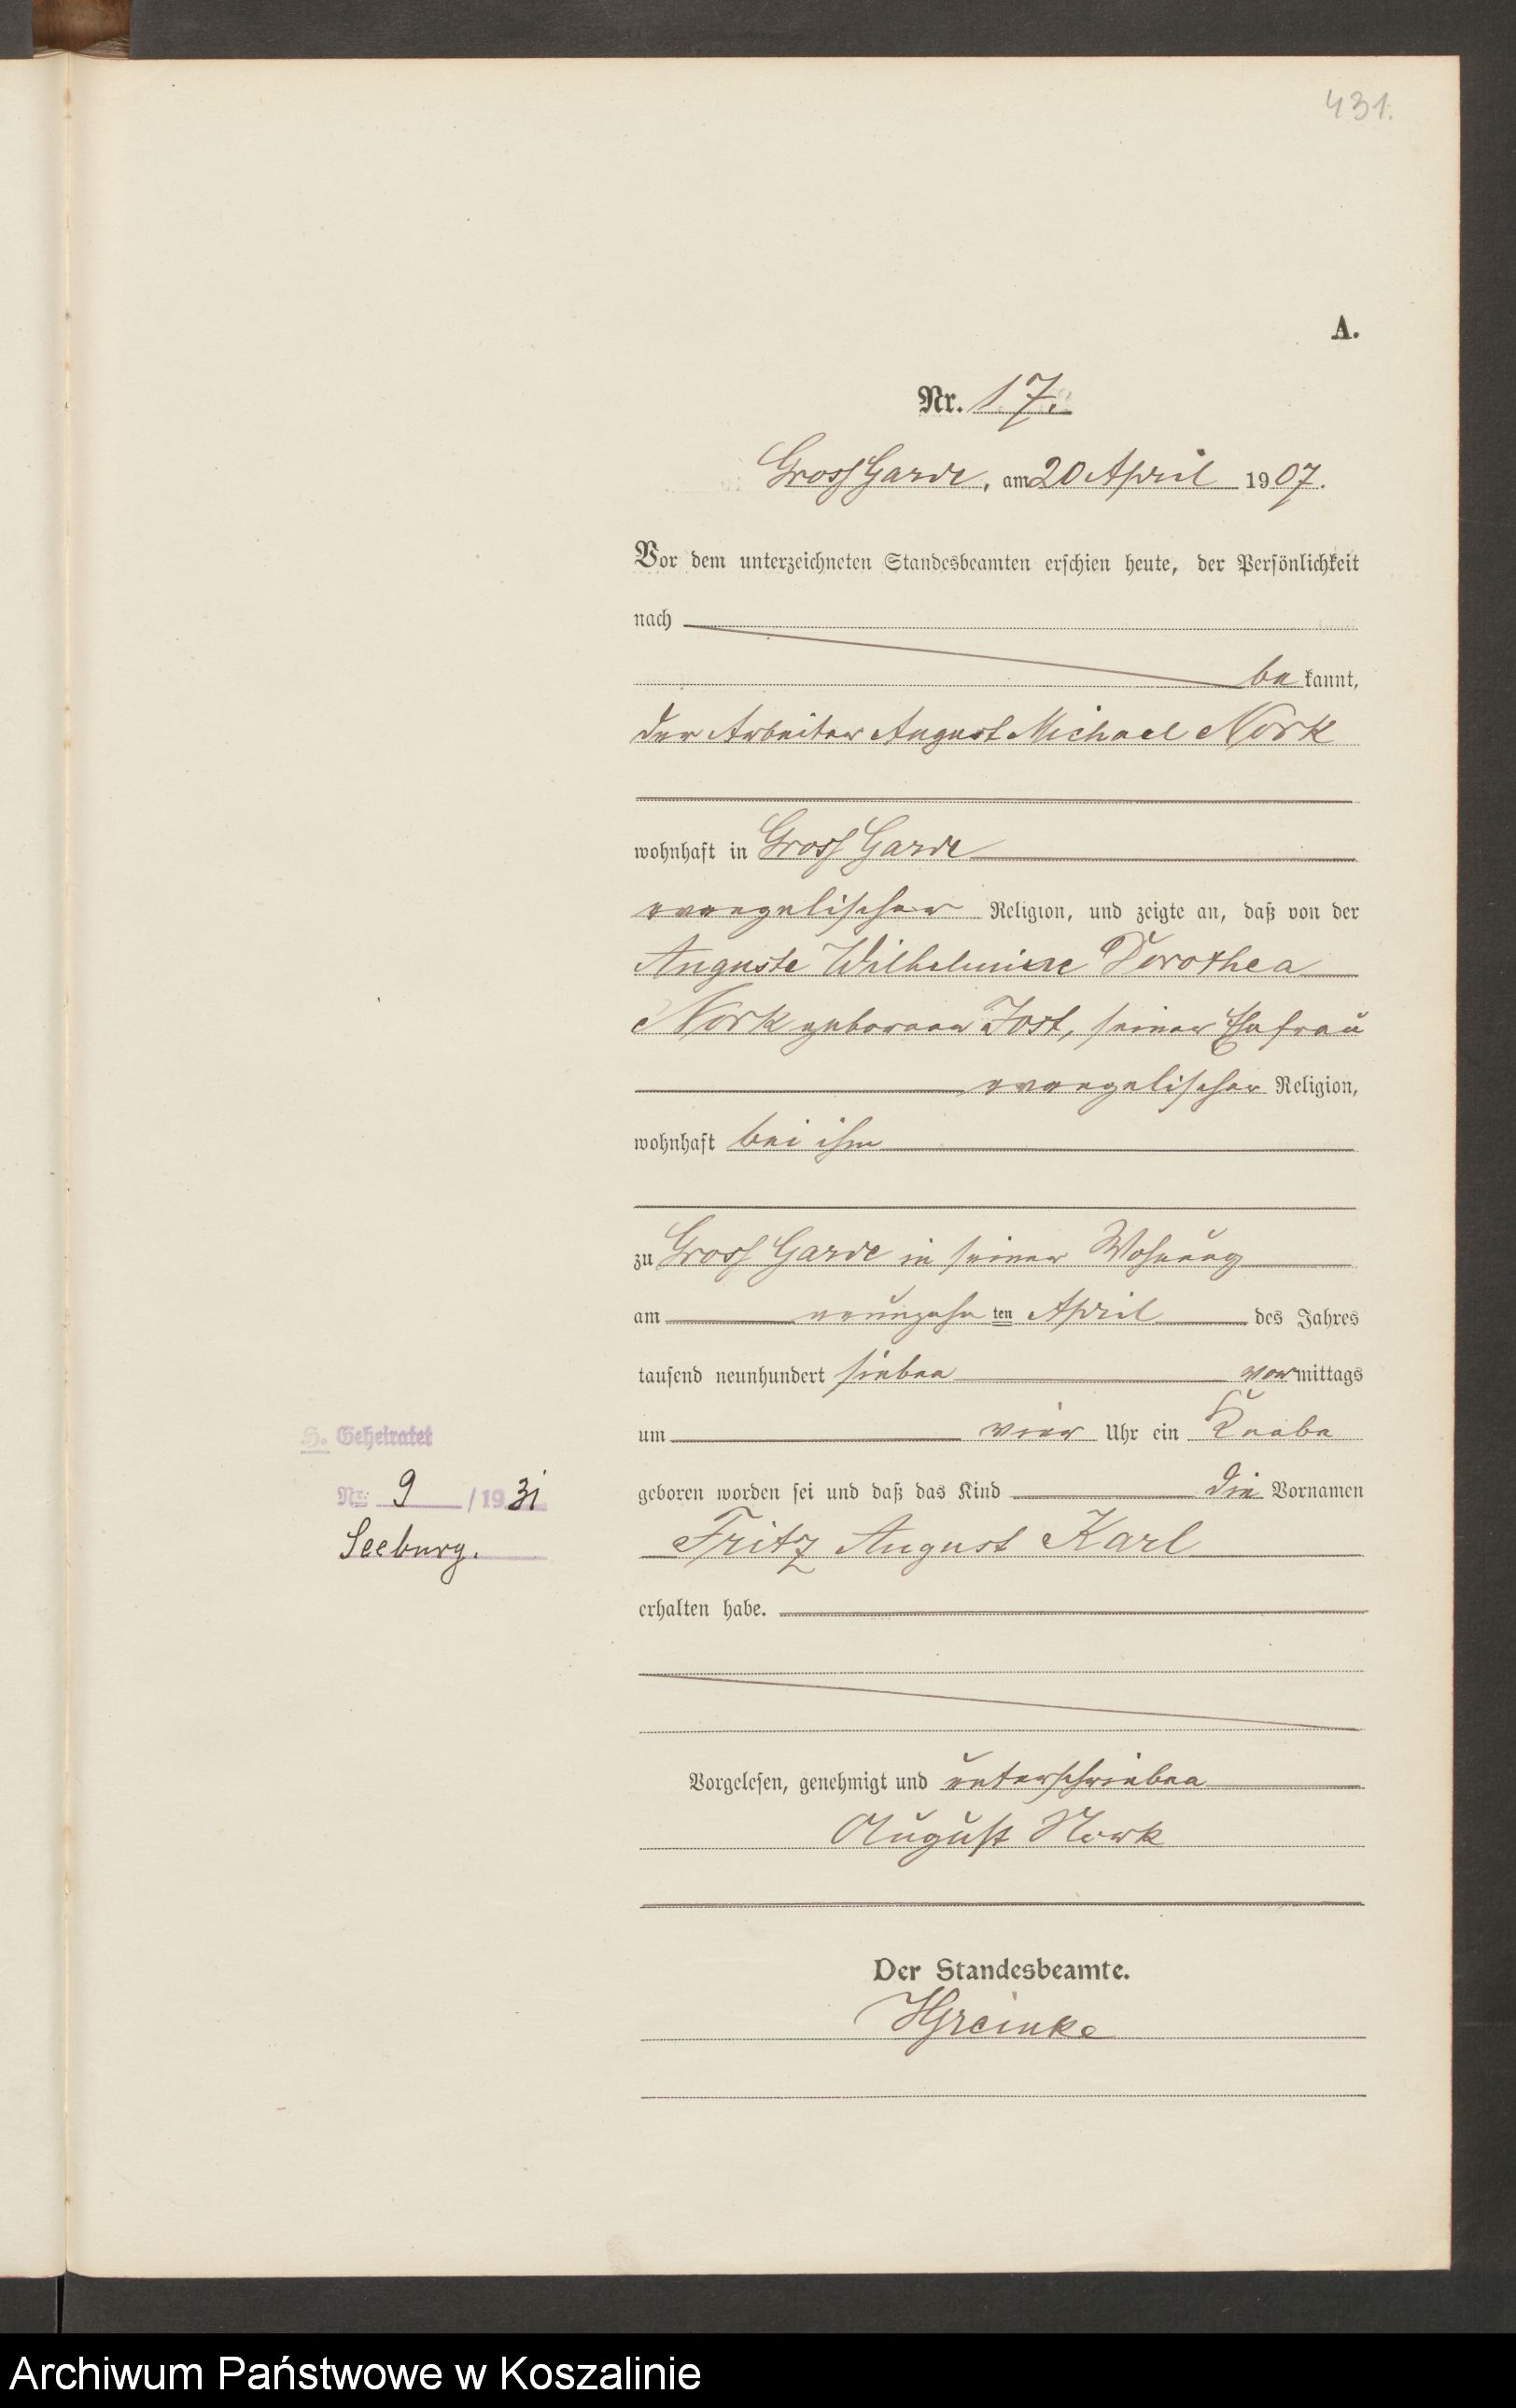 431.
A.
Nr. 17.
Gross Garde, am 20 April 1907.
Vor dem unterzeichneten Standesbeamten erschien heute, der Persönlichkeit
nach
be kannt,
der Arbeiter August Michael Nork
wohnhaft in Gross Garde
evangelischer Religion, und zeigte an, daß von der
Auguste Wilhelmine Dorothea
Nork geborenen Jost, seiner Ehefrau
evangelischer Religion,
wohnhaft bei ihm
zu Gross Garde in seiner Wohnung
am neunzehn ten April des Jahres
tausend neunhundert sieben vormittags
um vier Uhr ein Knabe
geboren worden sei und daß das Kind die Vornamen
Fritz August Karl
erhalten habe.
Vorgelesen, genehmigt und unterschrieben
August Nork
Der Standesbeamte.
HGreinke
H. Geheiratet
Nr. 9 /1931
Seeburg.
Archiwum Państwowe w Koszalinie